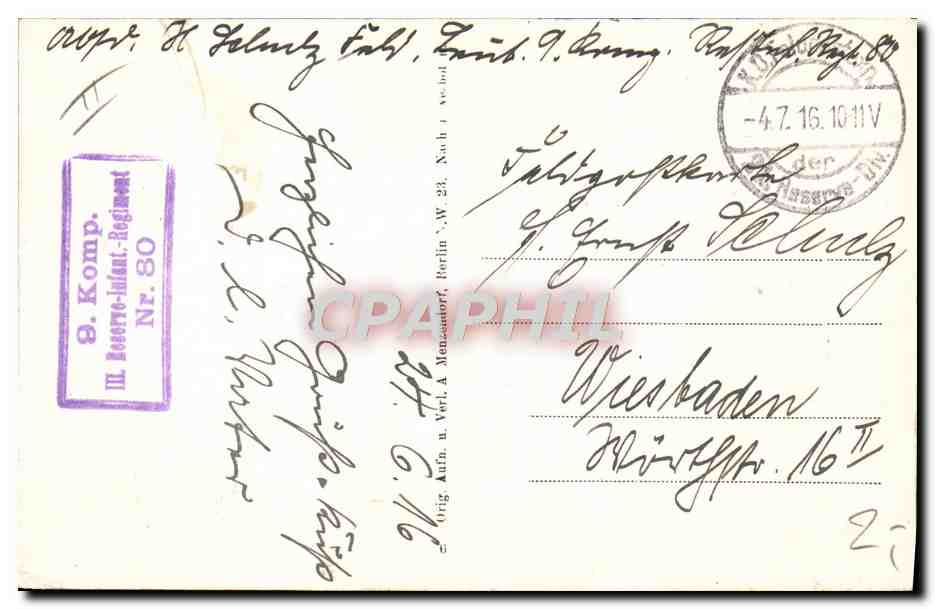 Absd. H Schulz Feld. Leut. 9. Komp. Res. Inf. Regt. 80
II
der Reserve-Div.
-4.7.16.10-11V
9. Komp.
III. Reserve-Infant.-Regiment
Nr. 80
Feldpostkarte
H. Ernst Schulz
Wiesbaden
Wörthstr. 16 II
Herzlichen Gruß u. Kuß
Vater
24. 6. 16
Orig. Aufn. u. Verl. A Menzendorf, Berlin N.W. 23. Nachdr. verbot.
CPAPHIL
2,-